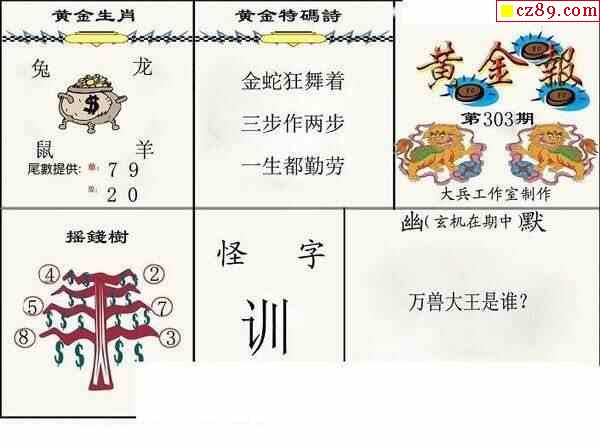 cz89.com
黄金生肖
兔 龙
$
鼠 羊
尾數提供： 7 9
2 0
黄金特碼詩
金蛇狂舞着
三步作两步
一生都勤劳
黄金報
第303期
大兵工作室制作
摇錢樹
④ ②
⑤ ⑦
⑧ ③
$ $ $ $ $ $ $ $ $ $
怪 字
训
幽(玄机在期中)默
万兽大王是谁？